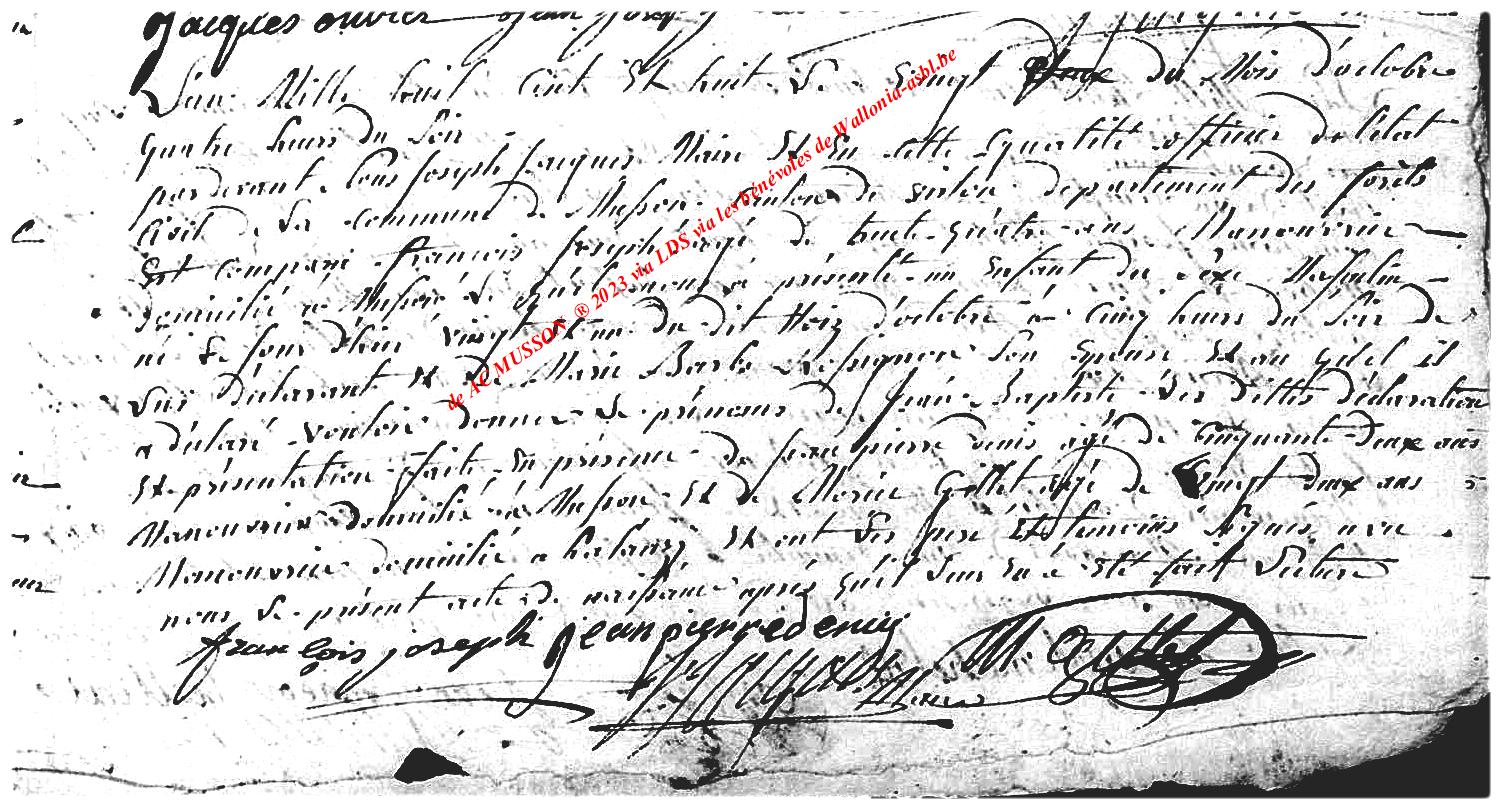 jacques ouvrier jean joseph
L'an Mille huit Cent Et huit Le Vingt deux du Mois d'octobre
quatre heures du Soir
pardevant Nous joseph jacques Maire Et En cette Qualité officier de l'état
Civil de La commune de Musson Canton de virton departement des forêts
Est Comparu francois joseph agé de trente quatre ans Manouvrier
domicilié a Musson Le quel nous a présenté un Enfant du séxe Masculin
né Le jour d'hier vingt Et un du dit Mois d'octobre a Cinq heures du Soir de
Lui déclarant Et De Marie Barbe Son Epouse Et au quel il
a déclaré Vouloir donner Le prénoms de Jean Baptiste Les dittes déclaration
Et présentation faite En présence de jean pierre denis agé de Cinquante deux ans
Manouvrier domicilié a Musson Et de Gillet agé de Vingt deux ans
Manouvrier domicilié a halanzy Et ont Les pere Et temoins Signés avec
nous Le présent acte de naissance après qu'il Leur En a Eté fait Lecture
françois joseph jean pierre denis
Maire
de AC MUSSON ® 2023 via LDS via les bénévoles de Wallonia-asbl.be